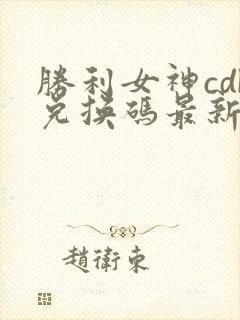 勝利女神cdk
兌換碼最新
趙衛東